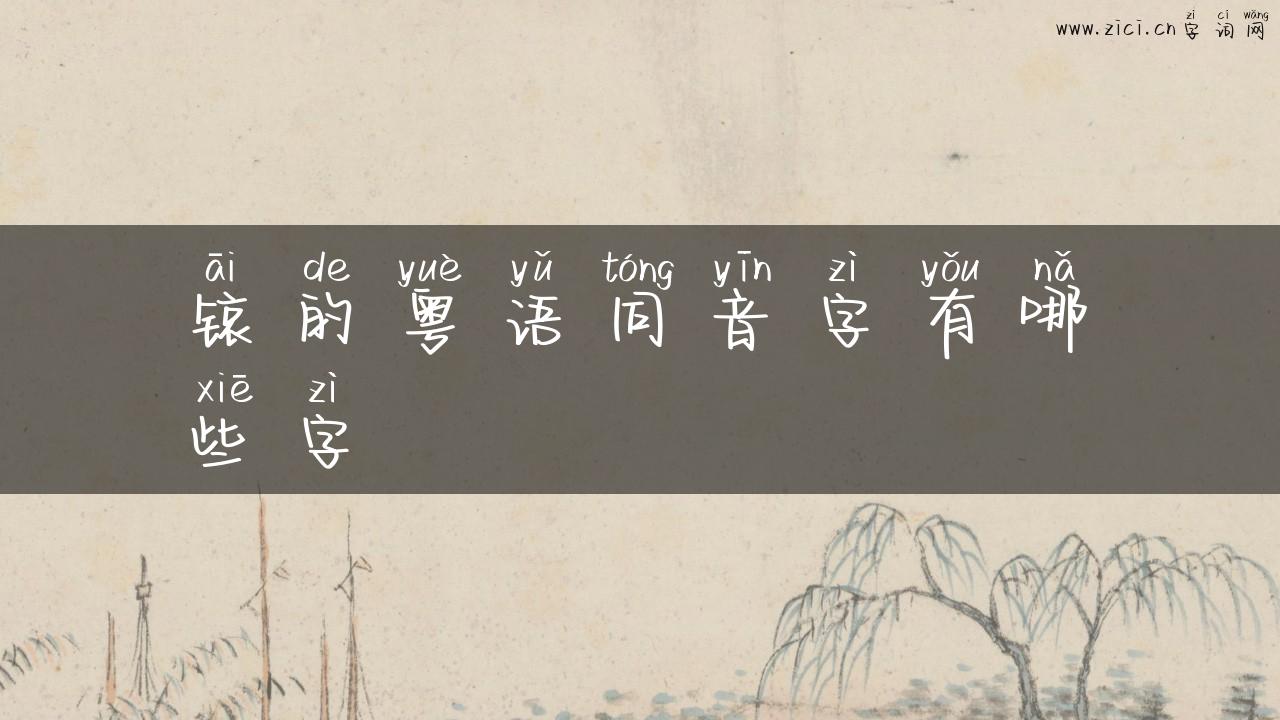 zì cí wǎng
www.zici.cn 字词网
āi de yuè yǔ tóng yīn zì yǒu nǎ
锿的粤语同音字有哪
xiē zì
些字